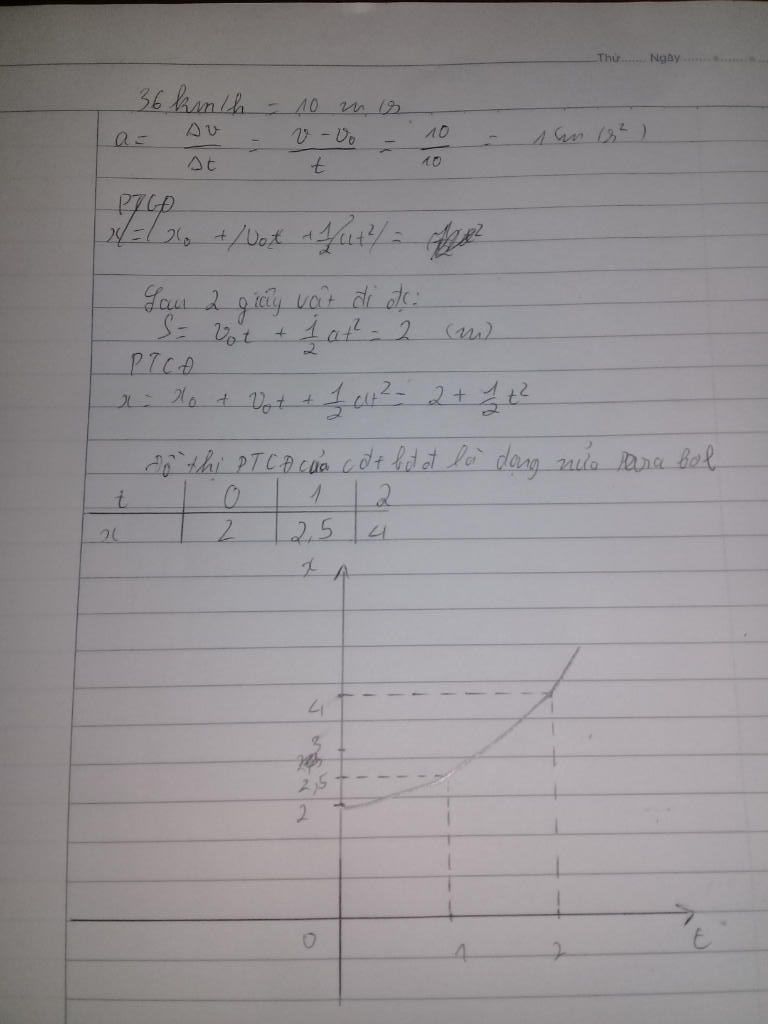 Thứ....... Ngày.......
36 km/h = 10 m/s
a = Δv/Δt = (v - v₀)/t = 10/10 = 1 (m/s²)
PTCĐ
x = x₀ + v₀t + 1/2 at² =
Sau 2 giây vật đi đc:
S = v₀t + 1/2 at² = 2 (m)
PTCĐ
x = x₀ + v₀t + 1/2 at² = 2 + 1/2 t²
Đồ thị PTCĐ của cđt bđđ là dạng nửa Para bol
t 0 1 2
x 2 2,5 4
x
4
3
2,5
2
0 1 2 t